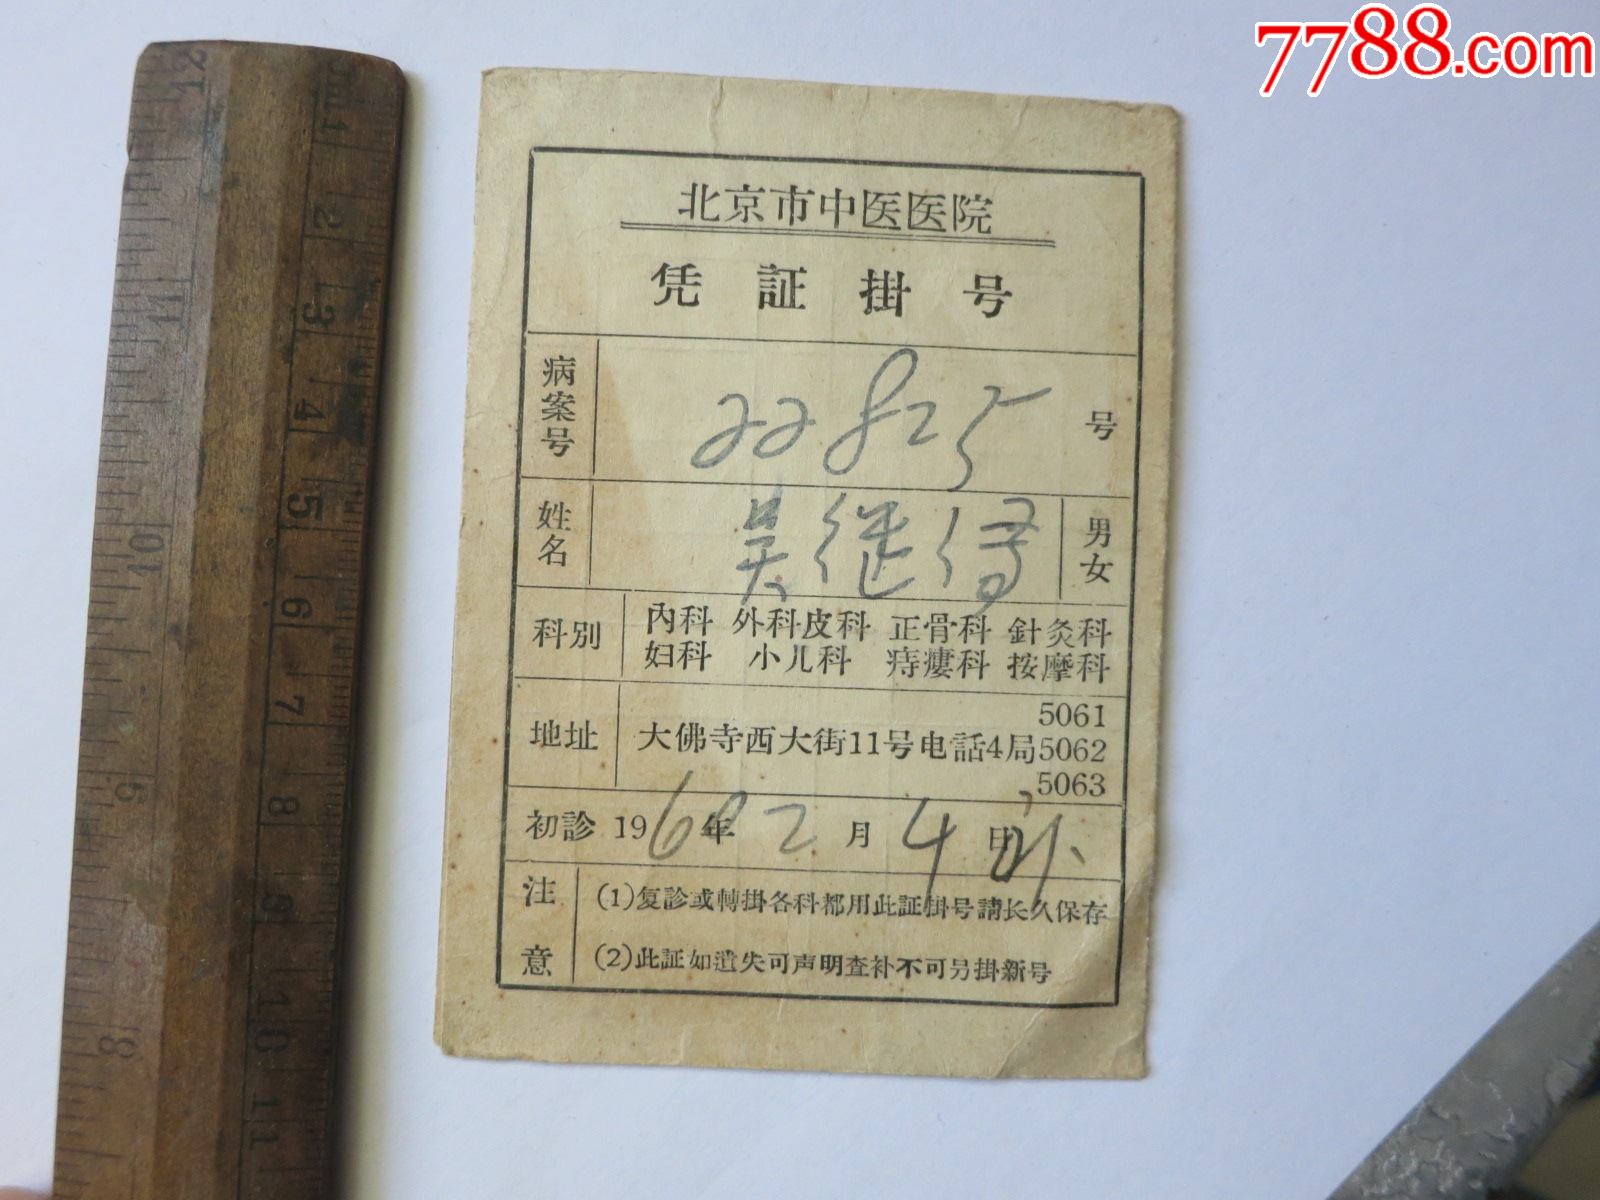 7788.com
北京市中医医院
凭証掛号
病案号 22825 号
姓名 吴继 男女
科別 內科 外科 皮科 正骨科 針灸科
妇科 小儿科 痔瘻科 按摩科
地址 大佛寺西大街11号电話4局 5061
5062
5063
初診 1960年 2月 4日 补
注意 (1)复診或轉掛各科都用此証掛号請长久保存
(2)此証如遺失可声明查补不可另掛新号
cm 1 2 3 4 5 6 7 8 9 10 11
12 11 10 9 8